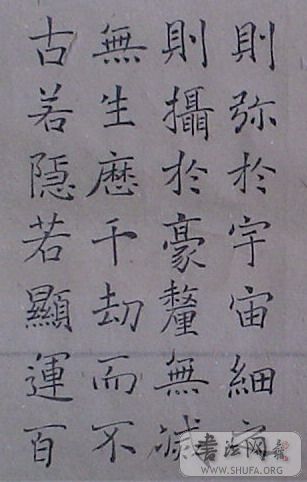 則弥於宇宙細之
則攝於豪釐無滅
無生歷千劫而不
古若隱若顯運百
書法网
WWW.SHUFA.ORG